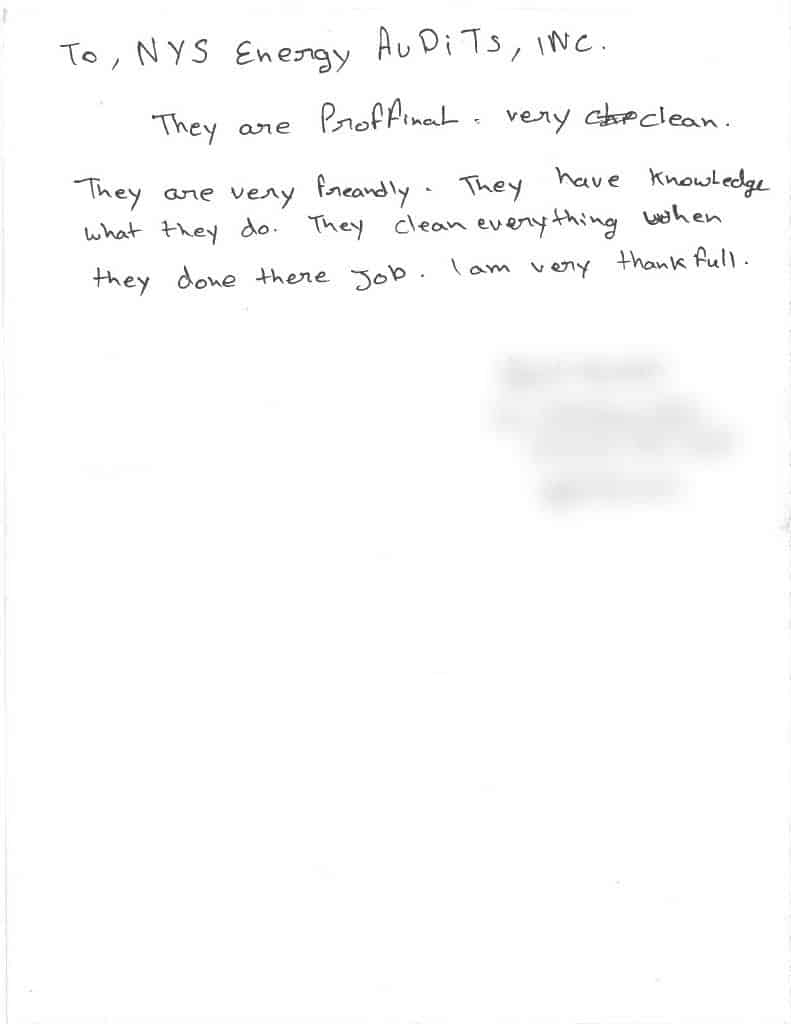 To, NYS Energy AuDiTs, INC.
They are Proffinal. very clean.
They are very freandly. They have Knowledge
what they do. They clean everything when
they done there Job. I am very thankfull.